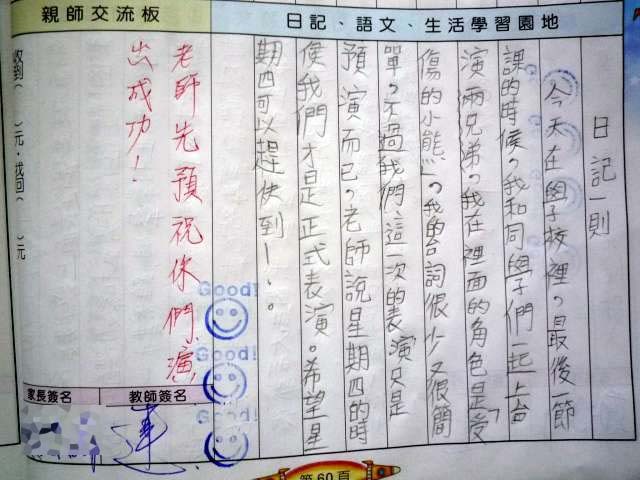 親師交流板
日記、語文、生活學習園地
日記一則
今天在學校裡，最後一節
課的時候，我和同學們一起上台
演兩兄弟，我在裡面的角色是「受
傷的小熊」，我的台詞很少又很簡
單，不過我們這一次的表演只是
預演而已，老師說星期四的時
候我們才是正式表演。希望星
期四可以趕快到!。。
老師先預祝你們演
出成功!
收到( )元，找回( )元
Good!
Good!
Good!
教師簽名
家長簽名
第60頁